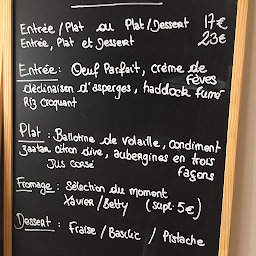 Entrée/Plat ou Plat/Dessert 17€
Entrée, Plat et Dessert 23€
Entrée: Oeuf Parfait, crème de
fèves
déclinaison d'asperges, haddock fumé
Riz croquant
Plat: Ballotine de volaille, condiment
zaatar citron olive, aubergines en trois
façons
Jus corsé
Fromage: Sélection du moment
Xavier/Betty (supt. 5€)
Dessert: Fraise/Basilic/Pistache